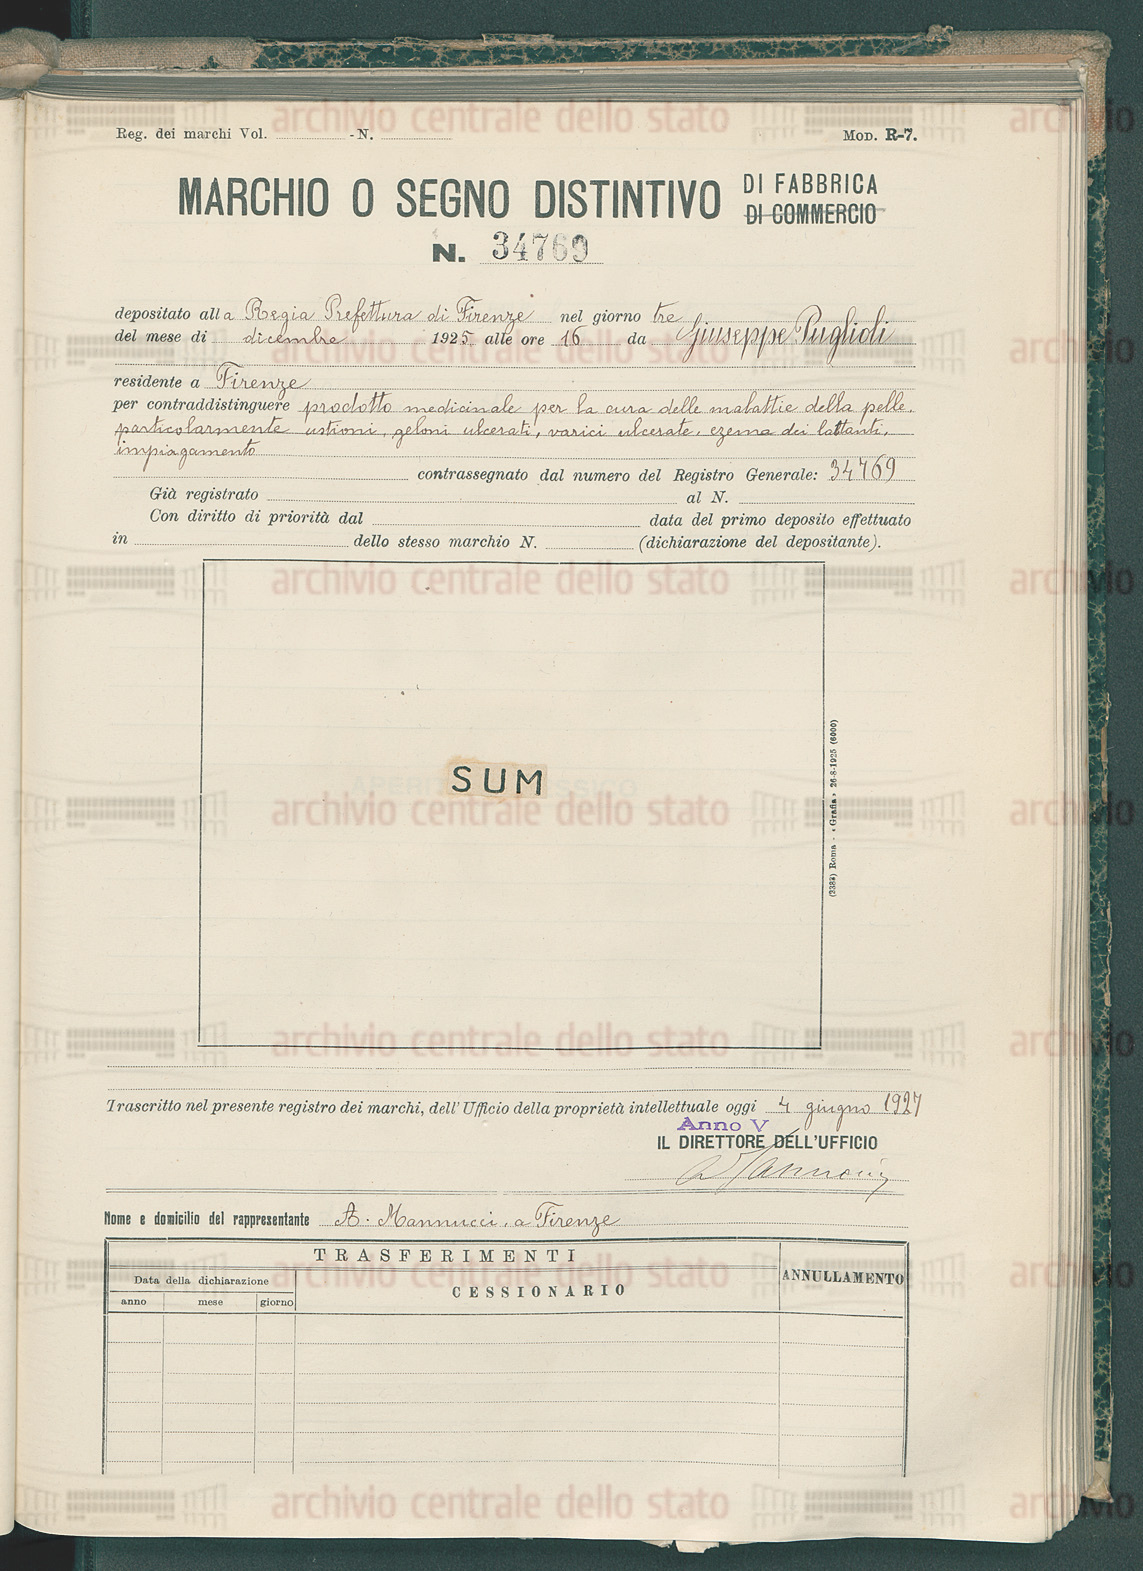 Reg. dei marchi Vol. - N.
MOD. R-7.
MARCHIO O SEGNO DISTINTIVO DI FABBRICA
DI COMMERCIO
N. 34769
depositato alla Regia Prefettura di Firenze nel giorno tre
del mese di dicembre 1925 alle ore 16 da Giuseppe Puglioli
residente a Firenze
per contraddistinguere prodotto medicinale per la cura delle malattie della pelle,
particolarmente ustioni, geloni ulcerati, varici ulcerate, eczema dei lattanti,
impiagamento
contrassegnato dal numero del Registro Generale: 34769
Già registrato al N.
Con diritto di priorità dal data del primo deposito effettuato
in dello stesso marchio N. (dichiarazione del depositante).
SUM
(2383) Roma - «Grafia» 26-8-1925 (6000)
Trascritto nel presente registro dei marchi, dell'Ufficio della proprietà intellettuale oggi 4 giugno 1927
Anno V
IL DIRETTORE DELL'UFFICIO
Nome e domicilio del rappresentante A. Mannucci, a Firenze
TRASFERIMENTI
ANNULLAMENTO
Data della dichiarazione
CESSIONARIO
anno mese giorno
archivio centrale dello stato